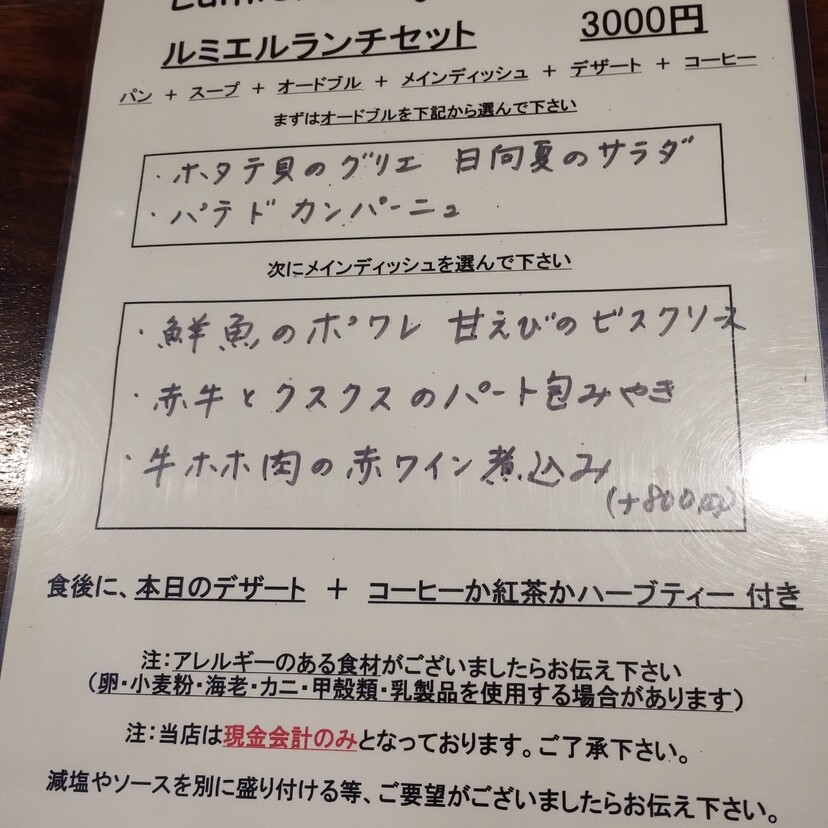 ルミエルランチセット 3000円
パン + スープ + オードブル + メインディッシュ + デザート + コーヒー
まずはオードブルを下記から選んで下さい
・ホタテ貝のグリエ 日向夏のサラダ
・パテド カンパーニュ
次にメインディッシュを選んで下さい
・鮮魚のポワレ 甘えびのビスクソース
・赤牛とクスクスのパート包みやき
・牛ホホ肉の赤ワイン煮込み
(+800円)
食後に、本日のデザート + コーヒーか紅茶かハーブティー 付き
注:アレルギーのある食材がございましたらお伝え下さい
(卵・小麦粉・海老・カニ・甲殻類・乳製品を使用する場合があります)
注:当店は現金会計のみとなっております。ご了承下さい。
減塩やソースを別に盛り付ける等、ご要望がございましたらお伝え下さい。